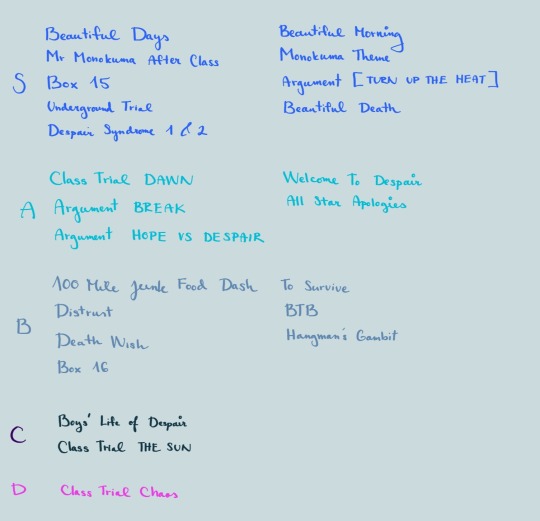 S
Beautiful Days
Mr Monokuma After Class
Box 15
Underground Trial
Despair Syndrome 1 & 2
Beautiful Morning
Monokuma Theme
Argument [TURN UP THE HEAT]
Beautiful Death
A
Class Trial DAWN
Argument BREAK
Argument HOPE VS DESPAIR
Welcome To Despair
All Star Apologies
B
100 Mile Junk Food Dash
Distrust
Death Wish
Box 16
To Survive
BTB
Hangman's Gambit
C
Boys' Life of Despair
Class Trial THE SUN
D
Class Trial Chaos